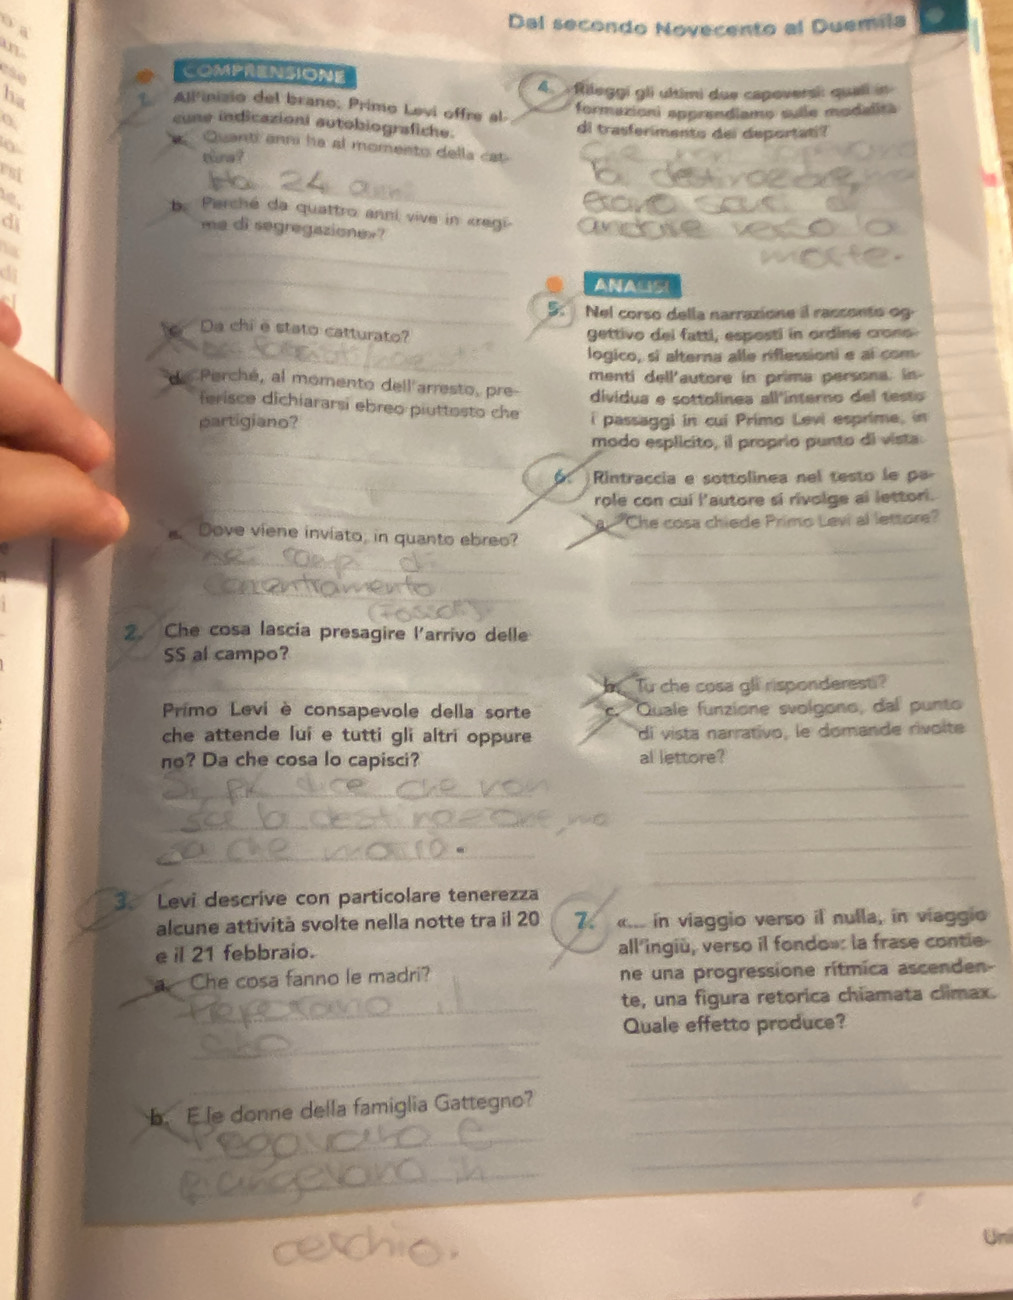 Dal secondo Novecento al Duemila
COMPRENSIONE
1. All'inizio del brano, Primo Levi offre al-
cune indicazioni autobiografiche.
a. Quanti anni ha al momento della cat-
tura?
Ha 24 anni
b. Perché da quattro anni vive in «regi-
me di segregazione»?
c. Da chi è stato catturato?
d. Perché, al momento dell'arresto, pre-
ferisce dichiararsi ebreo piuttosto che
partigiano?
e. Dove viene inviato, in quanto ebreo?
nei campi di
concentramento
2. Che cosa lascia presagire l'arrivo delle
SS al campo?
Primo Levi è consapevole della sorte
che attende lui e tutti gli altri oppure
no? Da che cosa lo capisci?
Si, pk dice che non
sa la destinazione, ma
sa che morirà.
3. Levi descrive con particolare tenerezza
alcune attività svolte nella notte tra il 20
e il 21 febbraio.
a. Che cosa fanno le madri?
Preparano il
cibo
b. E le donne della famiglia Gattegno?
Pregavano e
piangevano in
cerchio.
4. Rileggi gli ultimi due capoversi: quali in-
formazioni apprendiamo sulle modalità
di trasferimento dei deportati?
Che non
la destinazione, ma
erano di
andare verso la
morte.
ANALISI
5. Nel corso della narrazione il racconto og-
gettivo dei fatti, esposti in ordine crono-
logico, si alterna alle riflessioni e ai com-
menti dell'autore in prima persona. In-
dividua e sottolinea all'interno del testo
i passaggi in cui Primo Levi esprime, in
modo esplicito, il proprio punto di vista.
6. Rintraccia e sottolinea nel testo le pa-
role con cui l'autore si rivolge ai lettori.
a. Che cosa chiede Primo Levi al lettore?
b. Tu che cosa gli risponderesti?
c. Quale funzione svolgono, dal punto
di vista narrativo, le domande rivolte
al lettore?
7. «... in viaggio verso il nulla, in viaggio
all'ingiù, verso il fondo»: la frase contie-
ne una progressione ritmica ascenden-
te, una figura retorica chiamata climax.
Quale effetto produce?